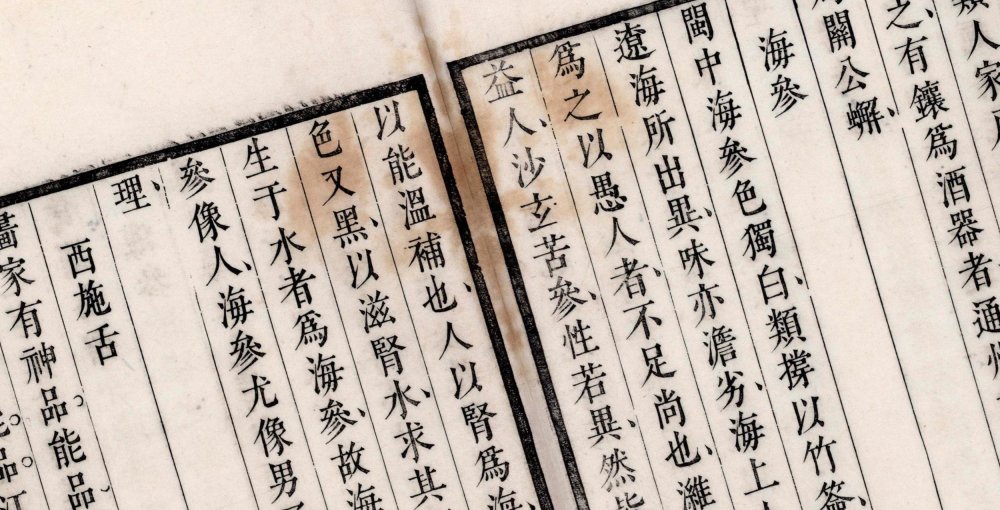 類人家
之、有鑲爲酒器者通
關公蠏、
海參
閩中海參色獨白、類撐以竹簽、
遼海所出異、味亦澹劣、海上
爲之以愚人者、不足尚也、濰
益人、沙玄苦參、性若異、然
以能溫補也、人以腎爲海
色又黑、以滋腎水、求其
生于水者爲海參、故海
參像人、海參尤像男
理、
西施舌
畫家有神品。能品、
品。